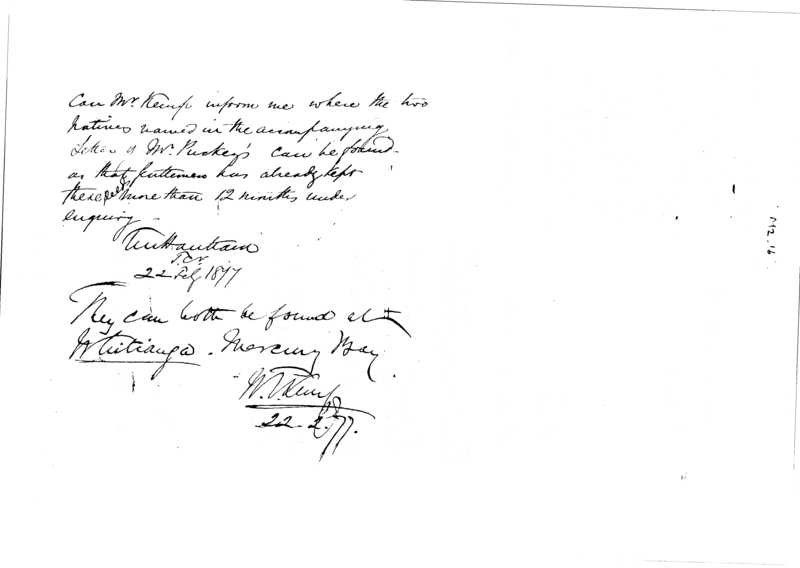 Can Mr. Kemp inform me where the two
natives named in the accompanying
Letter of Mr. Puckey's can be found
as that gentleman has already kept
these more than 12 months under
enquiry –
22 Feby 1877
They can both be found at
Whitianga. Mercury Bay.
W. T. Kemp
22.2.77.
M2.16